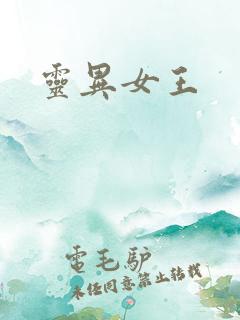 靈異女王
電毛驴
未经同意禁止转载